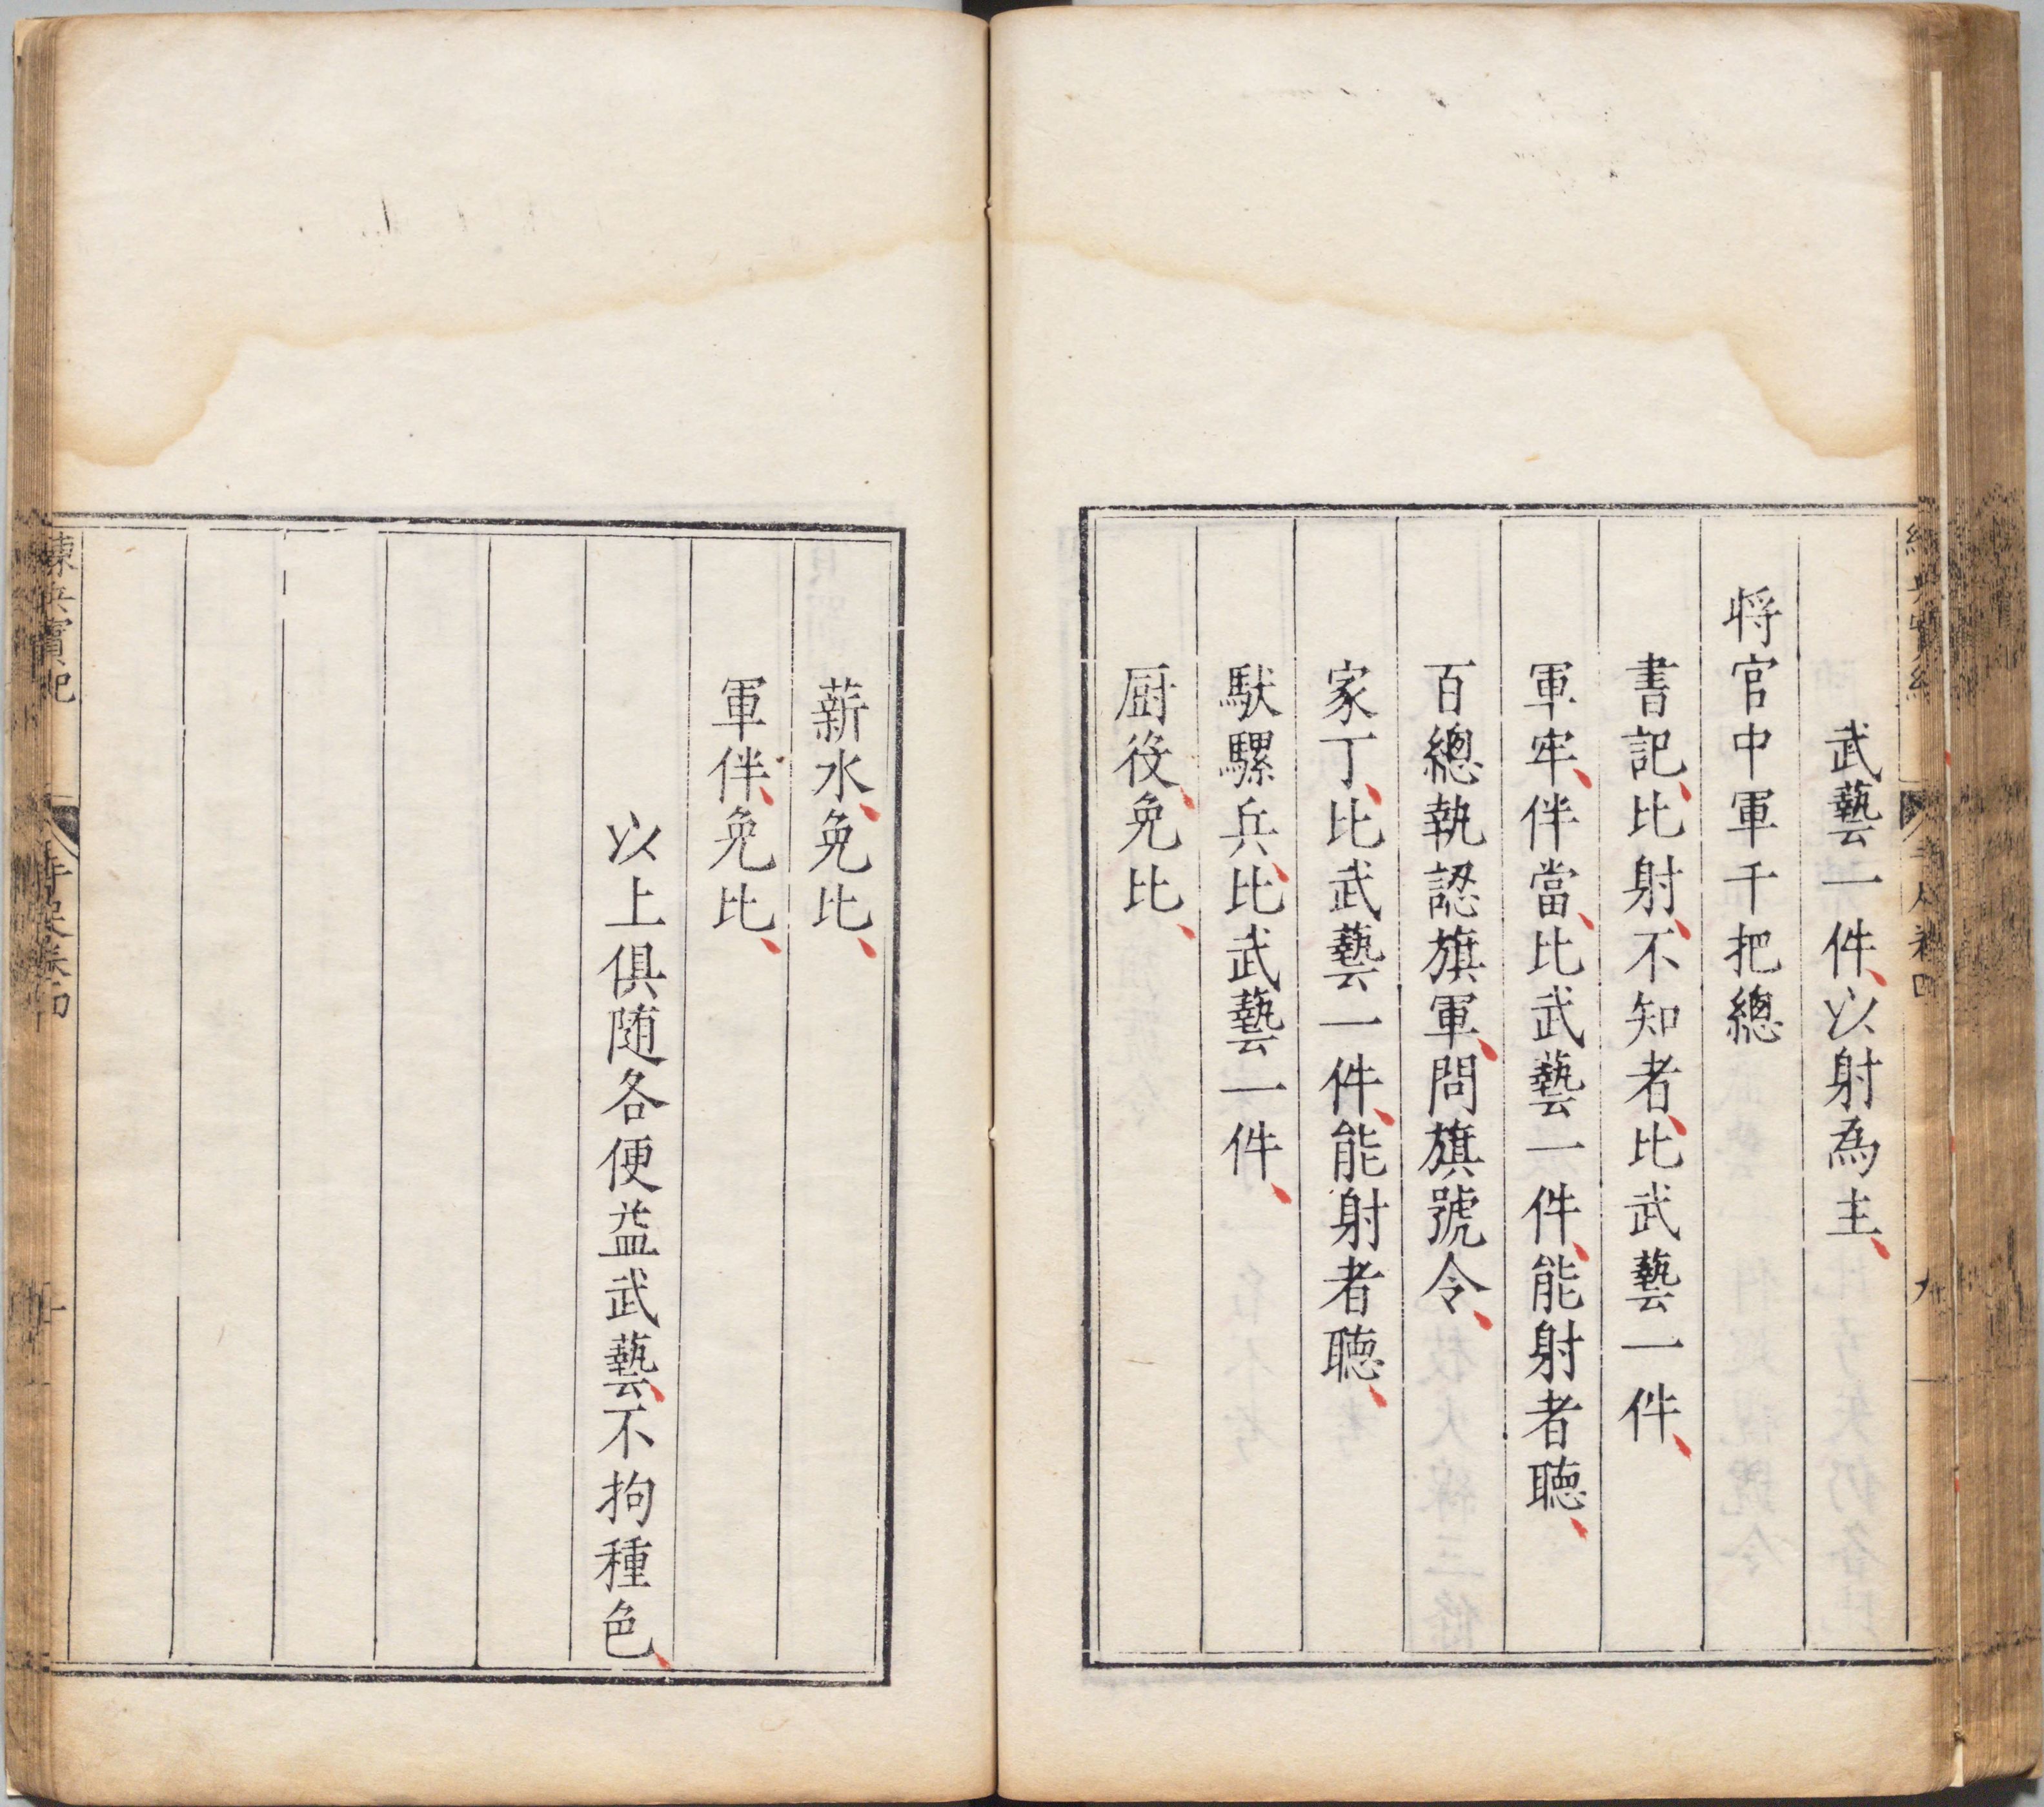 武藝一件、以射為主、
將官中軍千把總
書記、比射、不知者、比武藝一件、
軍牢、伴當、比武藝一件、能射者聽、
百總執認旗軍、問旗號令、
家丁、比武藝一件、能射者聽、
馱騾兵、比武藝一件、
厨役、免比、
薪水、免比、
軍伴、免比、
以上俱随各便益武藝、不拘種色、